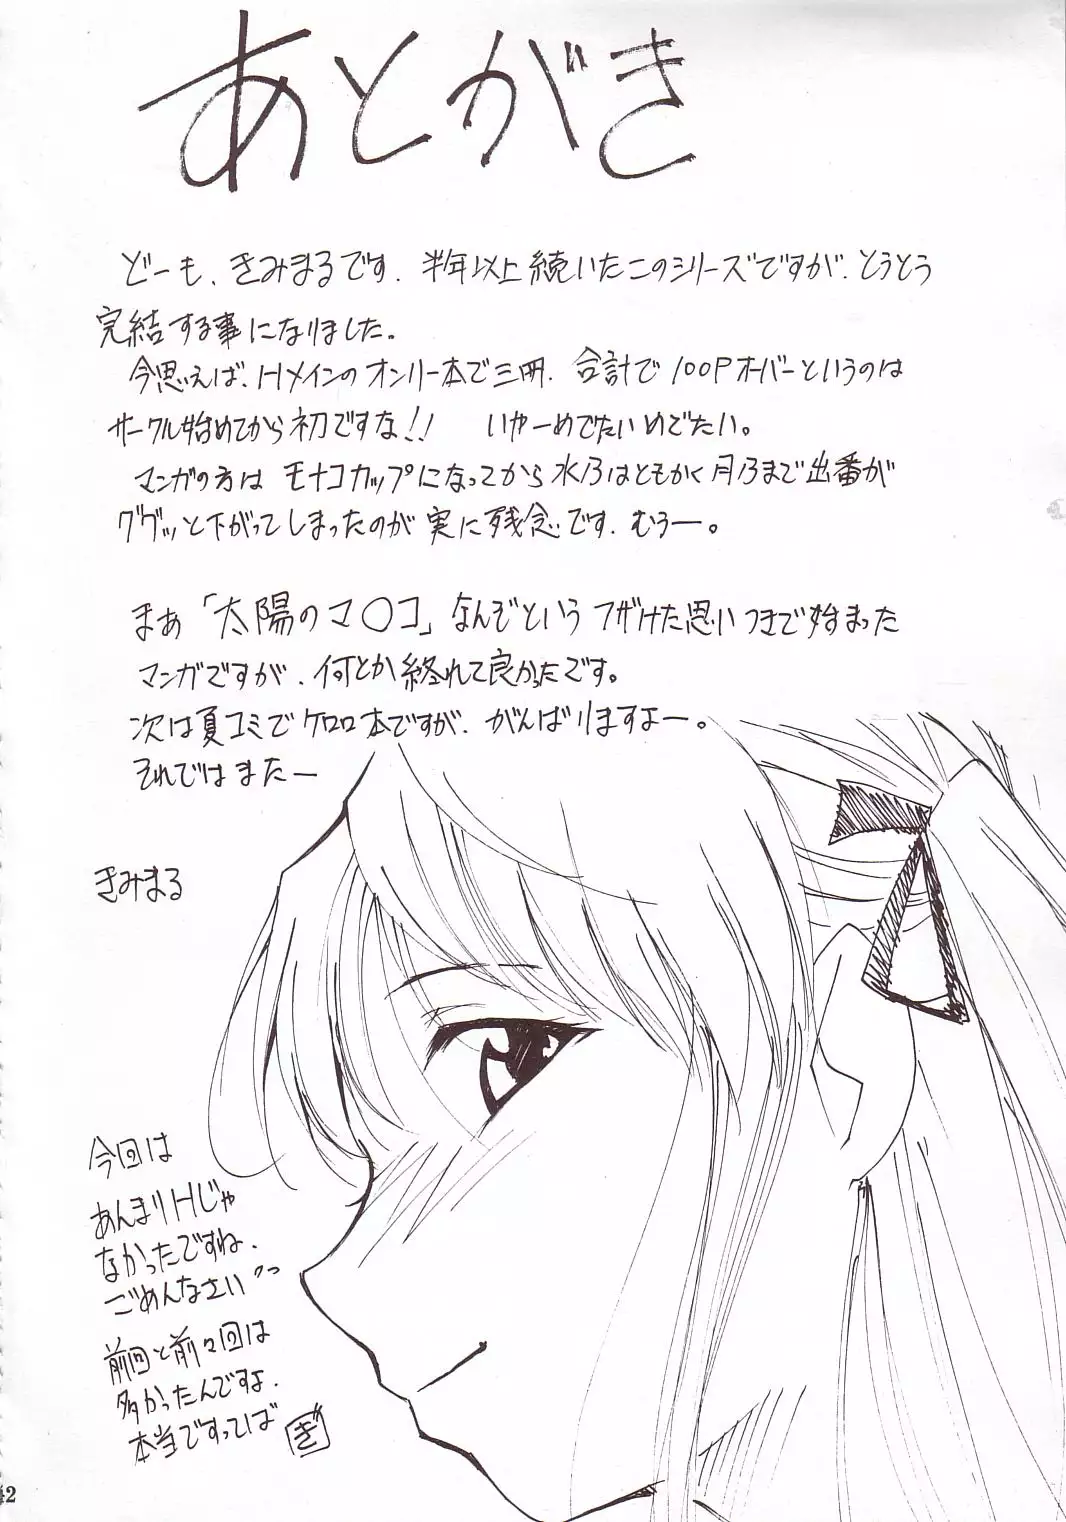 あとがき
どーも、きみまるです。半年以上続いたこのシリーズですが、とうとう
完結する事になりました。
今思えば、Hメインのオンリー本で三冊、合計で100Pオーバーというのは
サークル始めてから初ですな!! いやーめでたいめでたい。
マンガの方はモナコカップになってから水乃はともかく月乃まで出番が
ググッと下がってしまったのが実に残念です。むうー。
まぁ「太陽のマ〇コ」なんぞというフザけた思いつきで始まった
マンガですが、何とか終れて良かったです。
次は夏コミでケロロ本ですが、がんばりますよー。
それではまたー
きみまる
今回は
あんまりHじゃ
なかったですね。
ごめんなさい
前回と前々回は
多かったんですよ。
本当ですってば
ぎ
42